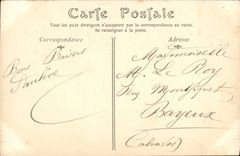 Carte Postale
Tous les pays étrangers n'acceptent pas la correspondance au recto.
Se renseigner à la poste.
Correspondance
Adresse
Bons Baisers
Pauline
Mademoiselle
M. Le Roy
Bayeux
Calvados